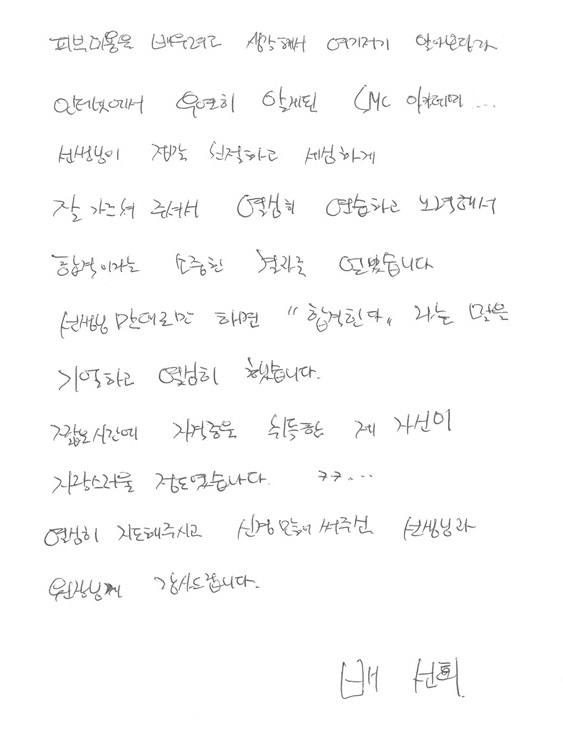 피부미용을 배우려고 생각해서 여기저기 알아보던가
인터넷에서 우연히 알게된 CMC 아카데미...
선생님이 정말 친절하고 세심하게
잘 가르쳐 주셔서 열심히 연습하고 노력해서
합격이라는 소중한 결과를 얻었습니다
선생님 말대로만 하면 "합격한다" 라는 말은
기억하고 열심히 했습니다.
짧은시간에 자격증을 취득한 제 자신이
자랑스러울 정도였습니다. ㅋㅋ...
열심히 지도해주시고 신경 많이 써주신 선생님과
원장님께 감사드립니다.
배 선희